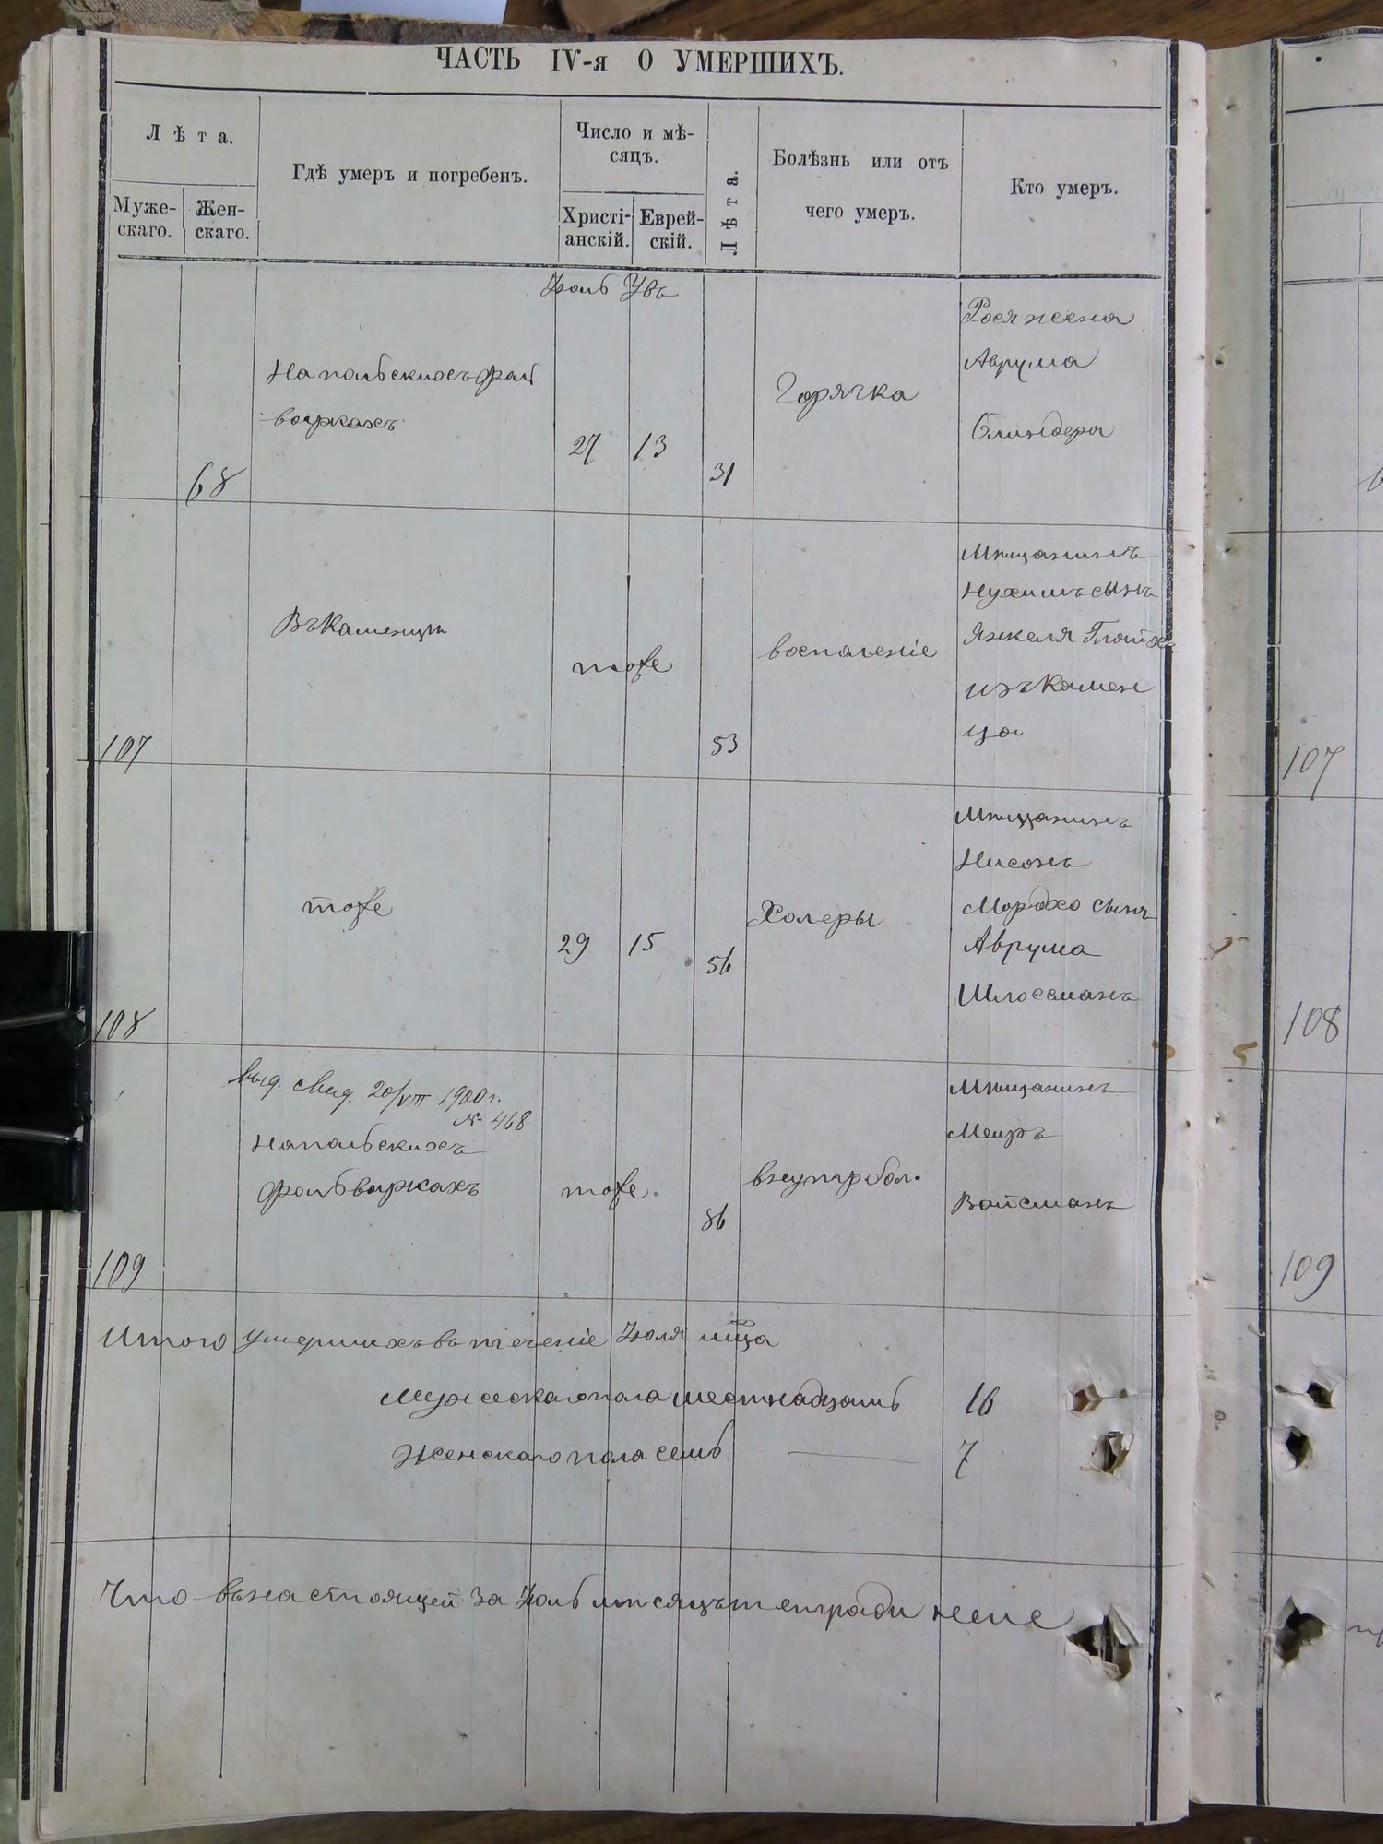 ЧАСТЬ IV-я О УМЕРШИХЪ.
Лѣта.
Муже-
скаго.
Жен-
скаго.
Гдѣ умеръ и погребенъ.
Число и мѣ-
сяцъ.
Христі-
анскій.
Еврей-
скій.
Лѣта.
Болѣзнь или отъ
чего умеръ.
Кто умеръ.
Юль
68
На польскихъ фоль
воркахъ
27
13
31
Горячка
Рося жена
Аврума
Блиндера
107
Въ Каменцѣ
тоже
53
воспаленіе
Мѣщанинъ
Нухимъ сынъ
Янкеля
изъ Камен
ца
107
108
тоже
29
15
56
Холеры
Мѣщанинъ
Нисонъ
Мордхо сынъ
Аврума
Шлосманъ
108
выд. свид. 20/VIII 1900 г.
№ 468
109
На польскихъ
фольваркахъ
тоже.
86
внутр бол.
Мѣщанинъ
Меиръ
Вайсманъ
109
Итого умершихъ въ теченіе Юля мца
Мужескаго пола шестнадцать 16
Женскаго пола семь 7
Что въ настоящей за Юль мѣсяцъ тетради неме